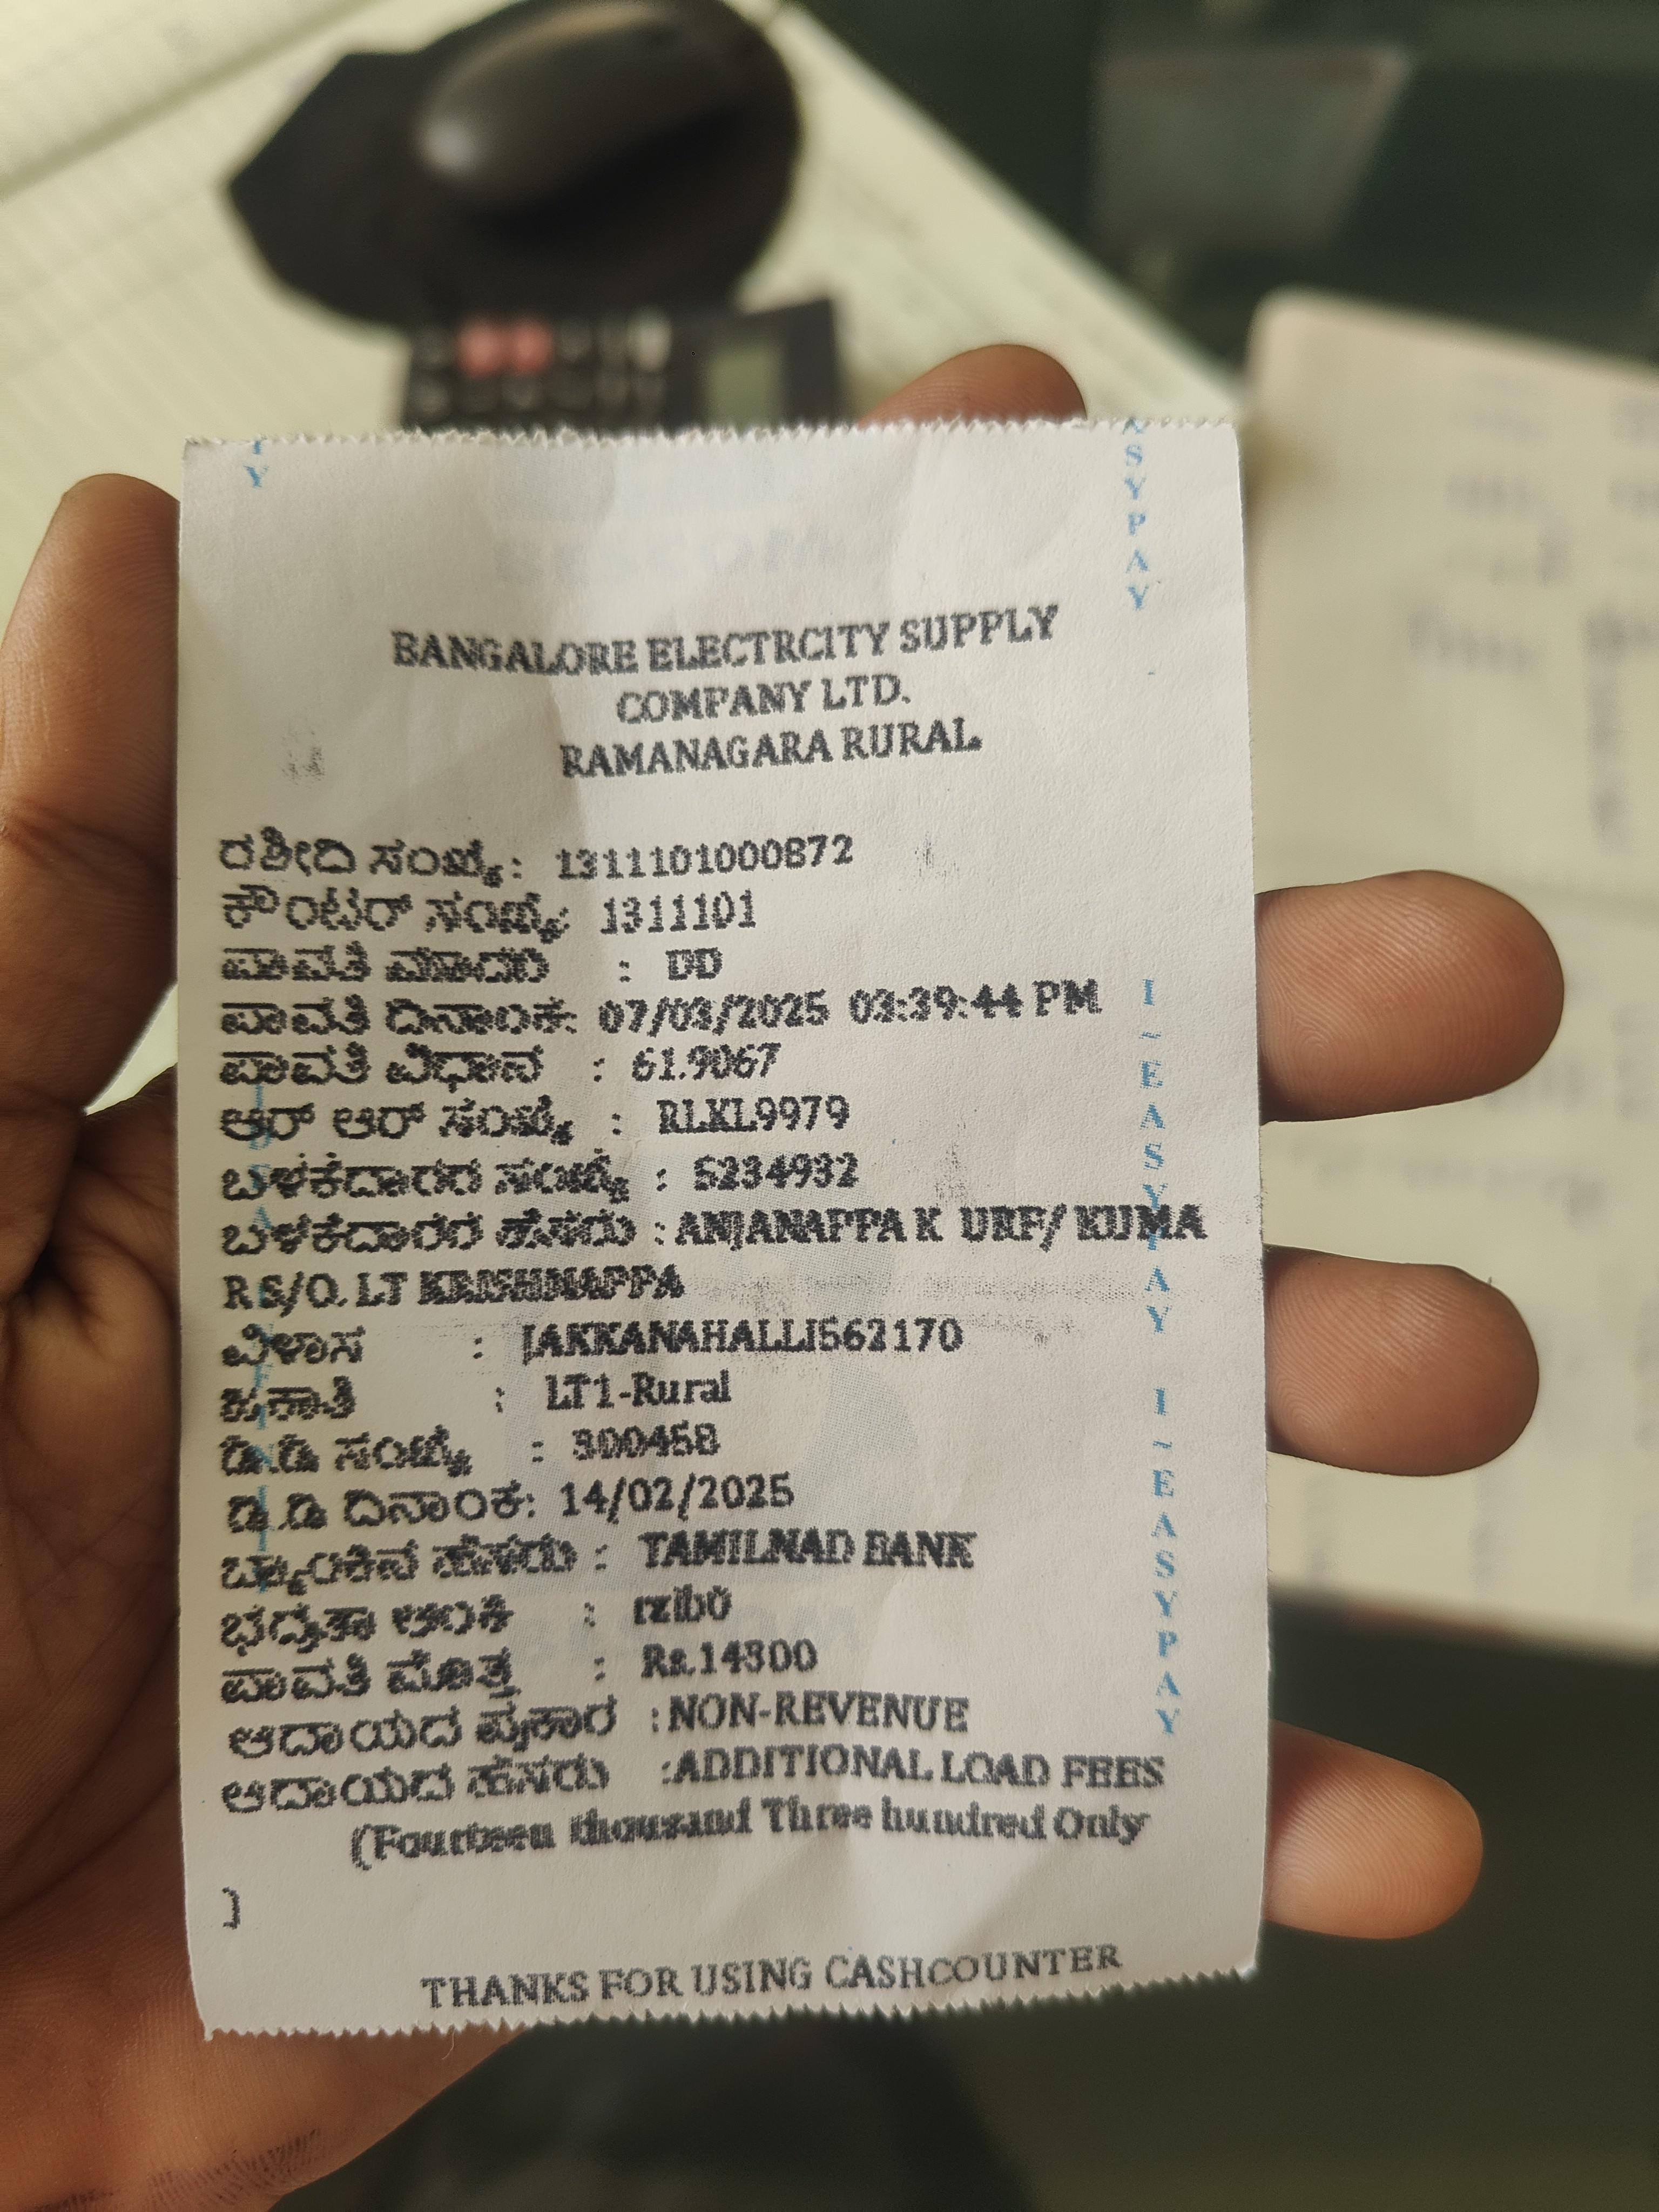 BANGALORE ELECTRCITY SUPPLY
COMPANY LTD.
RAMANAGARA RURAL
ರಶೀದಿ ಸಂಖ್ಯೆ: 1311101000872
ಕೌಂಟರ್ ಸಂಖ್ಯೆ: 1311101
ಪಾವತಿ ಮಾದರಿ : DD
ಪಾವತಿ ದಿನಾಂಕ: 07/03/2025 03:39:44 PM
ಪಾವತಿ ವಿಧಾನ : 61.9067
ಆರ್ ಆರ್ ಸಂಖ್ಯೆ : RLKL9979
ಬಳಕೆದಾರರ ಸಂಖ್ಯೆ : 5234932
ಬಳಕೆದಾರರ ಹೆಸರು :ANJANAPPA K URF/ KUMA
R S/O. LT KRISHNAPPA
ವಿಳಾಸ : JAKKANAHALLI562170
ಜಕಾತಿ : LT1-Rural
ಡಿ.ಡಿ ಸಂಖ್ಯೆ : 300458
ಡಿ.ಡಿ ದಿನಾಂಕ: 14/02/2025
ಬ್ಯಾಂಕಿನ ಹೆಸರು : TAMILNAD BANK
ಭದ್ರತಾ ಅಂಕಿ :
ಪಾವತಿ ಮೊತ್ತ : Rs.14300
ಆದಾಯದ ಪ್ರಕಾರ :NON-REVENUE
ಆದಾಯದ ಹೆಸರು :ADDITIONAL LOAD FEES
(Fourteen thousand Three hundred Only
)
THANKS FOR USING CASHCOUNTER
SYPAY
I~EASYPAY
I~EASYPAY